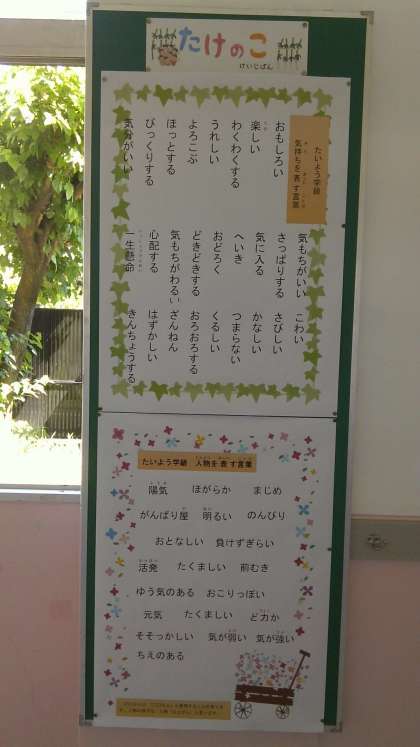 たけのこ
けいじばん
たいよう学級
気持ちを表す言葉
気もちがいい こわい
おもしろい さっぱりする さびしい
楽しい 気に入る かなしい
わくわくする へいき つまらない
うれしい おどろく くるしい
よろこぶ どきどきする おろおろする
ほっとする 気もちがわるい ざんねん
びっくりする 心配する はずかしい
気分がいい 一生懸命 きんちょうする
たいよう学級 人物を表す言葉
陽気 ほがらか まじめ
がんばり屋 明るい のんびり
おとなしい 負けずぎらい
活発 たくましい 前むき
ゆう気のある おこりっぽい
元気 たくましい ど力か
そそっかしい 気が弱い 気が強い
ちえのある